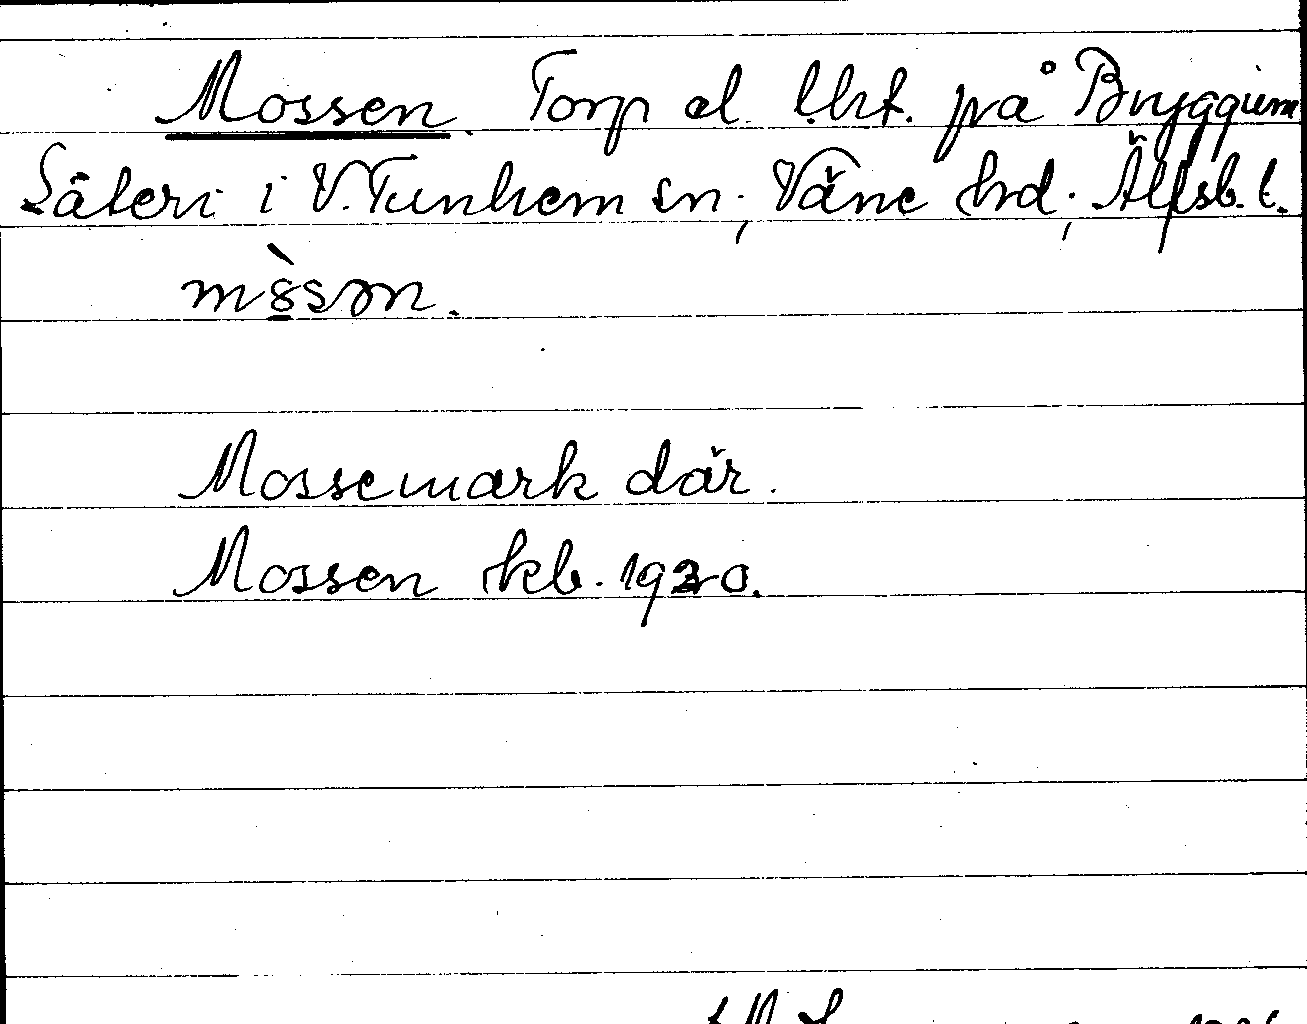 Mossen. Torp el. lht. på Bryggum
Säteri i V. Tunhem sn; Väne hd; Älfsb. l.
mòsən.
Mossemark där.
Mossen kb. 1920.